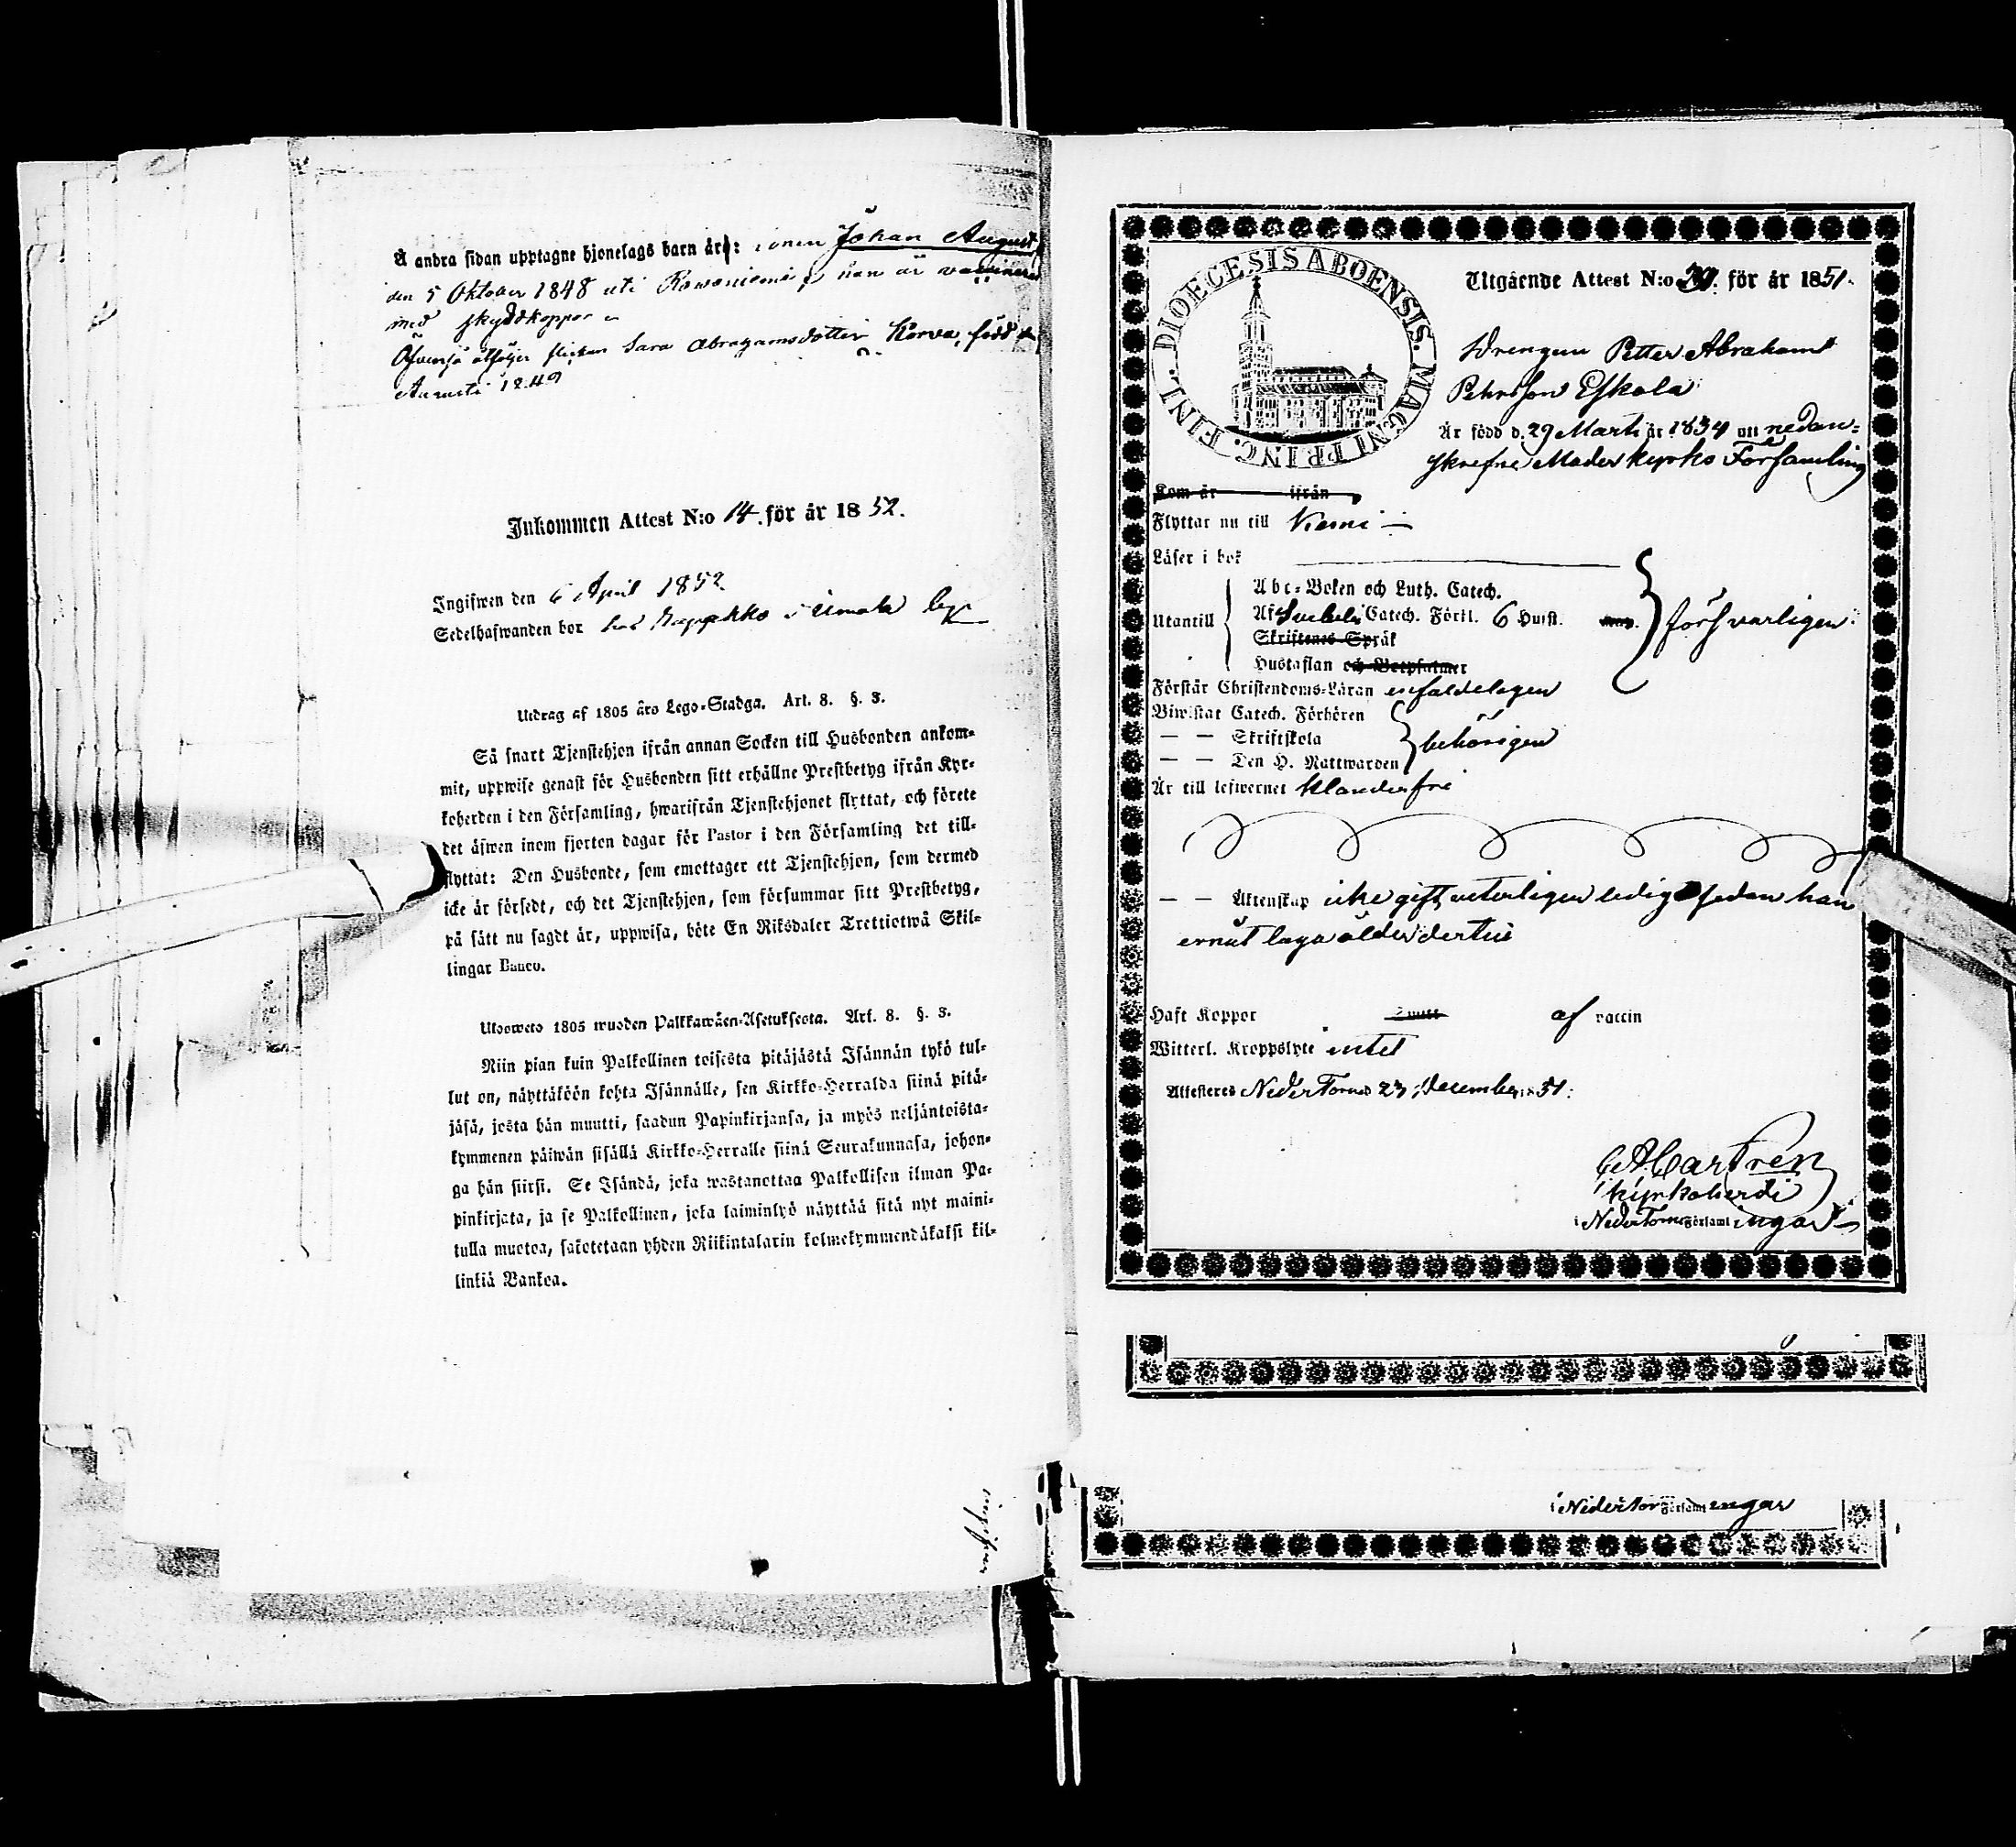 Å andra sidan upptagne hjonelags barn är: sonen Johan August
den 5 Oktober 1848 uti Rowaniemi, han är vaccinerad
med skyddkoppor
Äfvenså åtföljer flickan Sara Abrahamsdotter Korva, född
Augusti 1849
Inkommen Attest N:o 14. för år 1852.
Ingifwen den 6 April 1852
Sedelhafwanden bor hos i Simola by
Utdrag af 1805 års Lego-Stadga. Art. 8. §. 3.
Så snart Tjenstehjon ifrån annan Socken till Husbonden ankom-
mit, uppwise genast för Husbonden sitt erhållne Prestbetyg ifrån Kyr-
koherden i den Församling, hwarifrån Tjenstehjonet flyttat, och förete
det äfwen inom fjorton dagar för Pastor i den Församling det till-
flyttat: Den Husbonde, som emottager ett Tjenstehjon, som dermed
icke är försedt, och det Tjenstehjon, som försummar sitt Prestbetyg,
på sätt nu sagdt är, uppwisa, böte En Riksdaler Trettiotwå Skil-
lingar Banco.
Ulosweto 1805 wuoden Palkkawäen-Asetuksesta. Art. 8. §. 3.
Niin pian kuin Palkollinen toisesta pitäjästä Isännän tykö tul-
lut on, näyttäköön kohta Isännälle, sen Kirkko-Herralda siinä pitä-
jäsä, josta hän muutti, saadun Papinkirjansa, ja myös neljäntoista-
kymmenen päiwän sisällä Kirkko-Herralle siinä Seurakunnasa, johon-
ga hän siirsi. Se Isändä, joka wastanottaa Palkollisen ilman Pa-
pinkirjata, ja se Palkollinen, joka laiminlyö näyttää sitä nyt maini-
tulla muotoa, sakotetaan yhden Riikintalarin kolmekymmendäkaksi kil-
linkiä Bankoa.
DIOECESIS ABOENSIS. MAGNI PRINC. FINL.
Utgående Attest N:o 39. för år 1851.
Drengen Petter Abraham
Pehrsson Eskola
Är född d. 29 Marti år 1834 uti nedan-
skrefne Moderkyrko Församling
Kom år ifrån
Flyttar nu till Kemi
Läser i bok
Utantill
Abc-Boken och Luth. Catech.
Af Svebeli Catech. Förkl. 6 Hufst.
Skriftenes Språk
Hustaflan och Botpsalmer
försvarligen
Förstår Christendoms-Läran enfaldeligen
Biwistat Catech. Förhören
— — Skriftskola
— — Den H. Nattwarden
behörigen
Är till lefwernet klanderfri
— — Äktenskap icke gift, veterligen ledig sedan han
ernåt laga ålder dertill
Haft Koppor af vaccin
Witterl. Kroppslyte intet
Attesteras NederTorneå 23 December 1851.
Castrén
Kyrkoherde
i NederTorneå Församlingar
i NederTor Församlingar